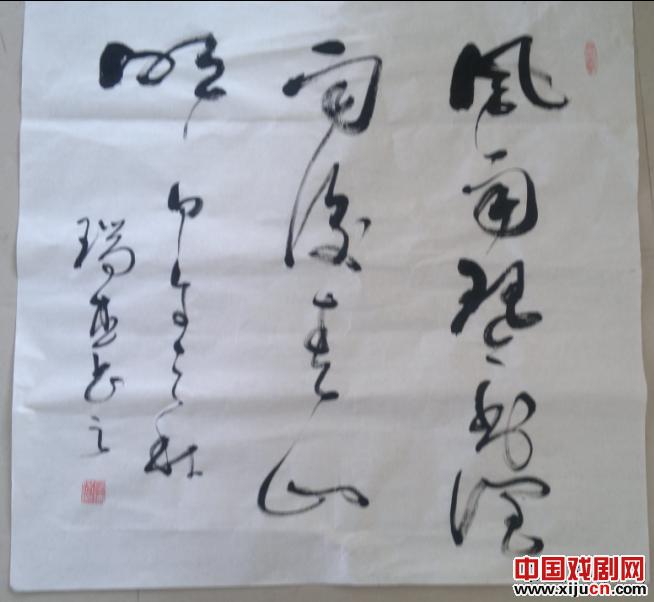 風雨琴書潤
雨後山
明
甲午之秋
瑞書之
中国戏剧网
www.xijucn.com